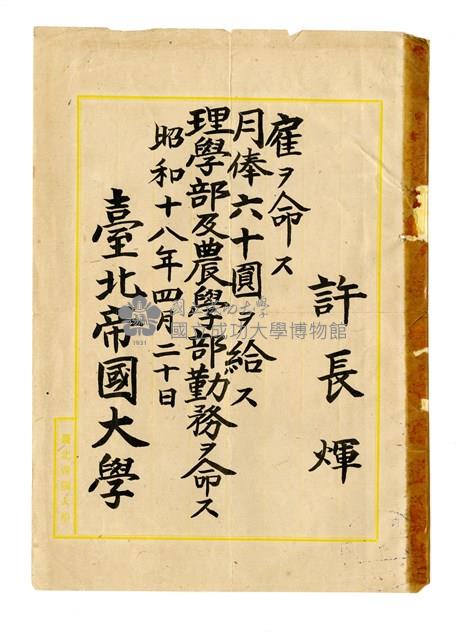 許長煇
雇ヲ命ス
月俸六十圓ヲ給ス
理學部及農學部勤務ヲ命ス
昭和十八年四月二十日
臺北帝國大學
國立成功大學
國立成功大學博物館
1931
臺北帝國大學